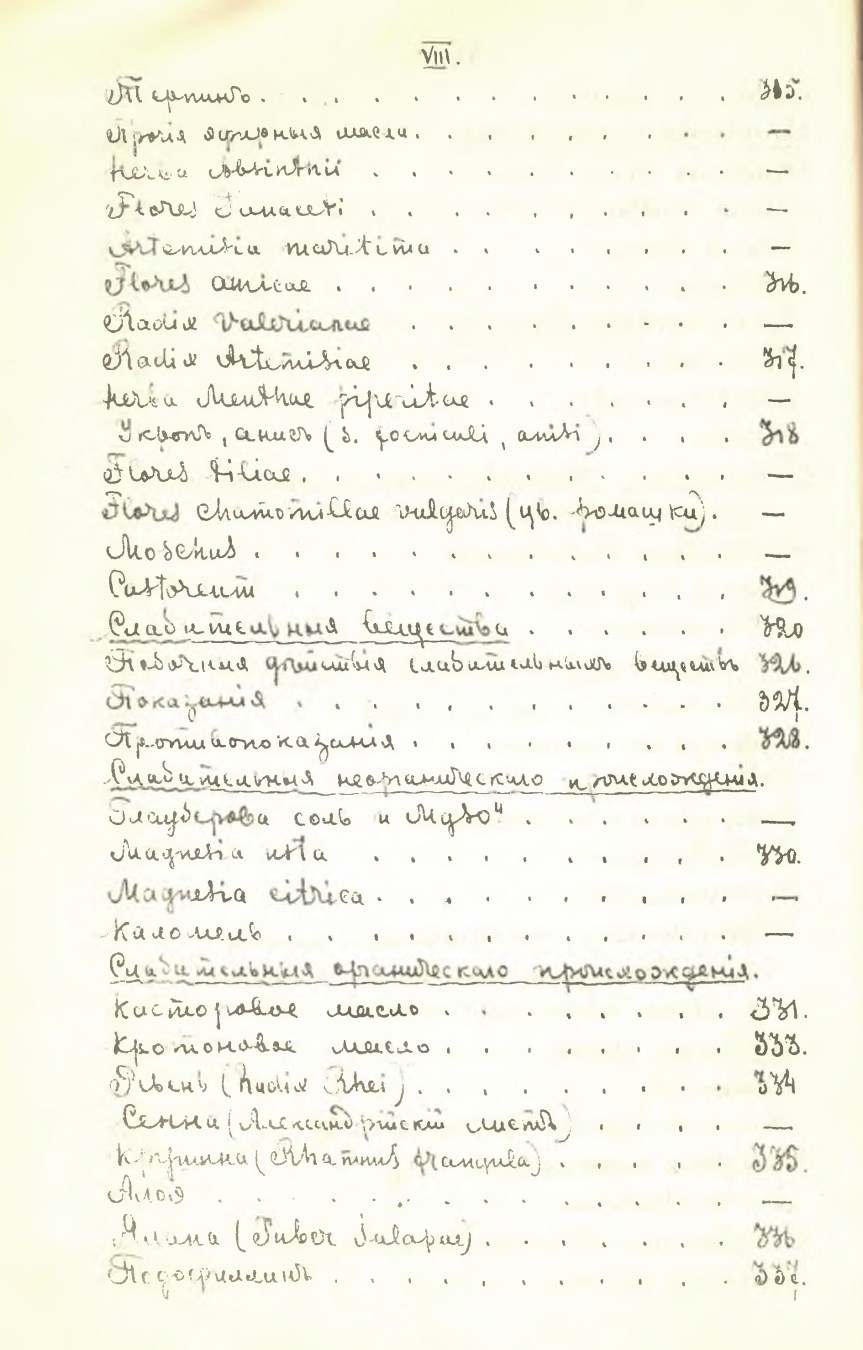 VIII.
Терпинъ . . . . . . . . . . . . . 315.
Прочія эфирныя масла . . . . . . . . . —
Herba Absinthii . . . . . . . . . . —
Flores Tanaceti . . . . . . . . . . —
Artemisia maritima . . . . . . . . —
Flores arnicae . . . . . . . . . . . 316.
Radix Valerianae . . . . . . . . . —
Radix Artemisiae . . . . . . . . . 317.
Herba Menthae piperitae . . . . . . . —
Укропъ, анисъ (s. foeniculi, anisi) . . . . 318
Flores tiliae . . . . . . . . . . . . —
Flores chamomillae vulgaris (цв. ромашки). —
Moschus . . . . . . . . . . . . —
Castoreum . . . . . . . . . . . 319.
Слабительныя вещества . . . . . . 320
Побочныя дѣйствія слабительныхъ веществъ 326.
Показанія . . . . . . . . . . . . 327.
Противопоказанія . . . . . . . . . 328.
Слабительныя неорганическаго происхожденія.
Глауберова соль и MgSO4 . . . . . . —
Magnesia usta . . . . . . . . . . 330.
Magnesia citrica . . . . . . . . . . —
Каломель . . . . . . . . . . . . —
Слабительныя органическаго происхожденія.
Касторовое масло . . . . . . . . 331.
Кротоновое масло . . . . . . . . 333.
Ревень (Radix Rhei) . . . . . . . . . 334
Сенна (Александрійскій листъ) . . . . —
Крушина (Rhamnus frangula) . . . . . 335.
Алоэ . . . . . . . . . . . . —
Ялапа (Tuber Jalapae) . . . . . . . 336
Подофиллинъ . . . . . . . . . . . 337.